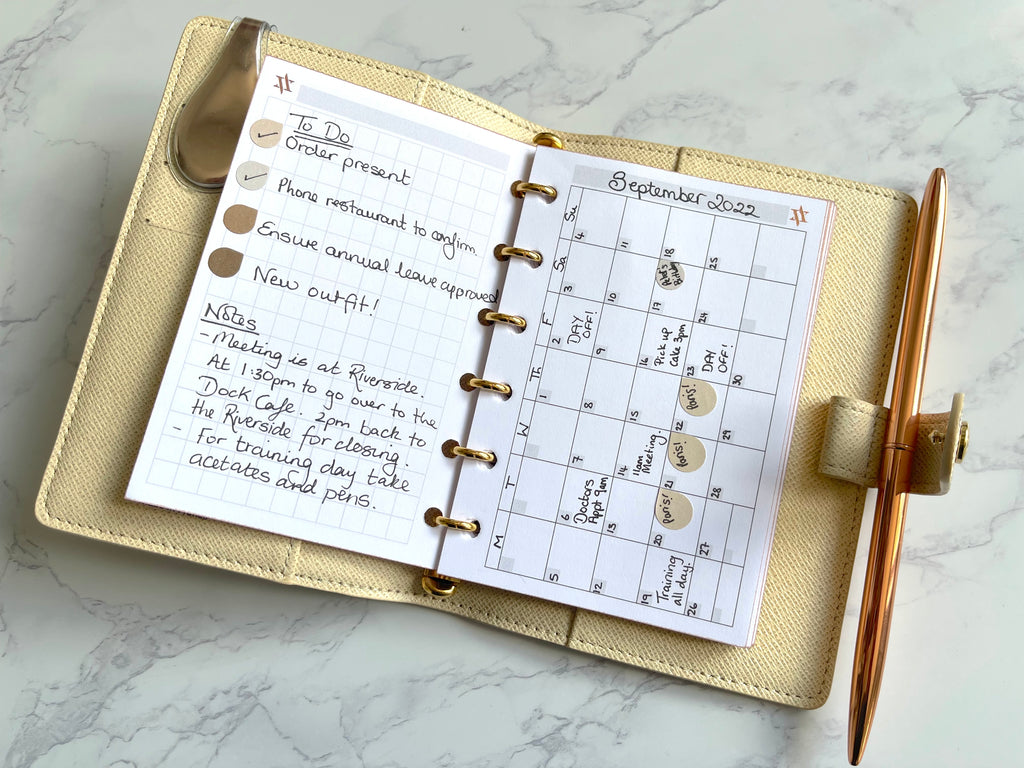 To Do
Order present
Phone restaurant to confirm.
Ensure annual leave approved
New outfit!
Notes
- Meeting is at Riverside.
At 1:30pm to go over to the
Dock Cafe. 2pm back to
the Riverside for closing.
- For training day take
acetates and pens.
September 2022
M T W Th F Sa Su
1 2 3 4
DAY
OFF!
5 6 7 8 9 10 11
Doctors
Appt 9am
12 13 14 15 16 17 18
11am
Meeting.
Pick up
Cake 3pm
19 20 21 22 23 24 25
Training
all day.
Paris!
Paris!
Paris!
DAY
OFF!
26 27 28 29 30